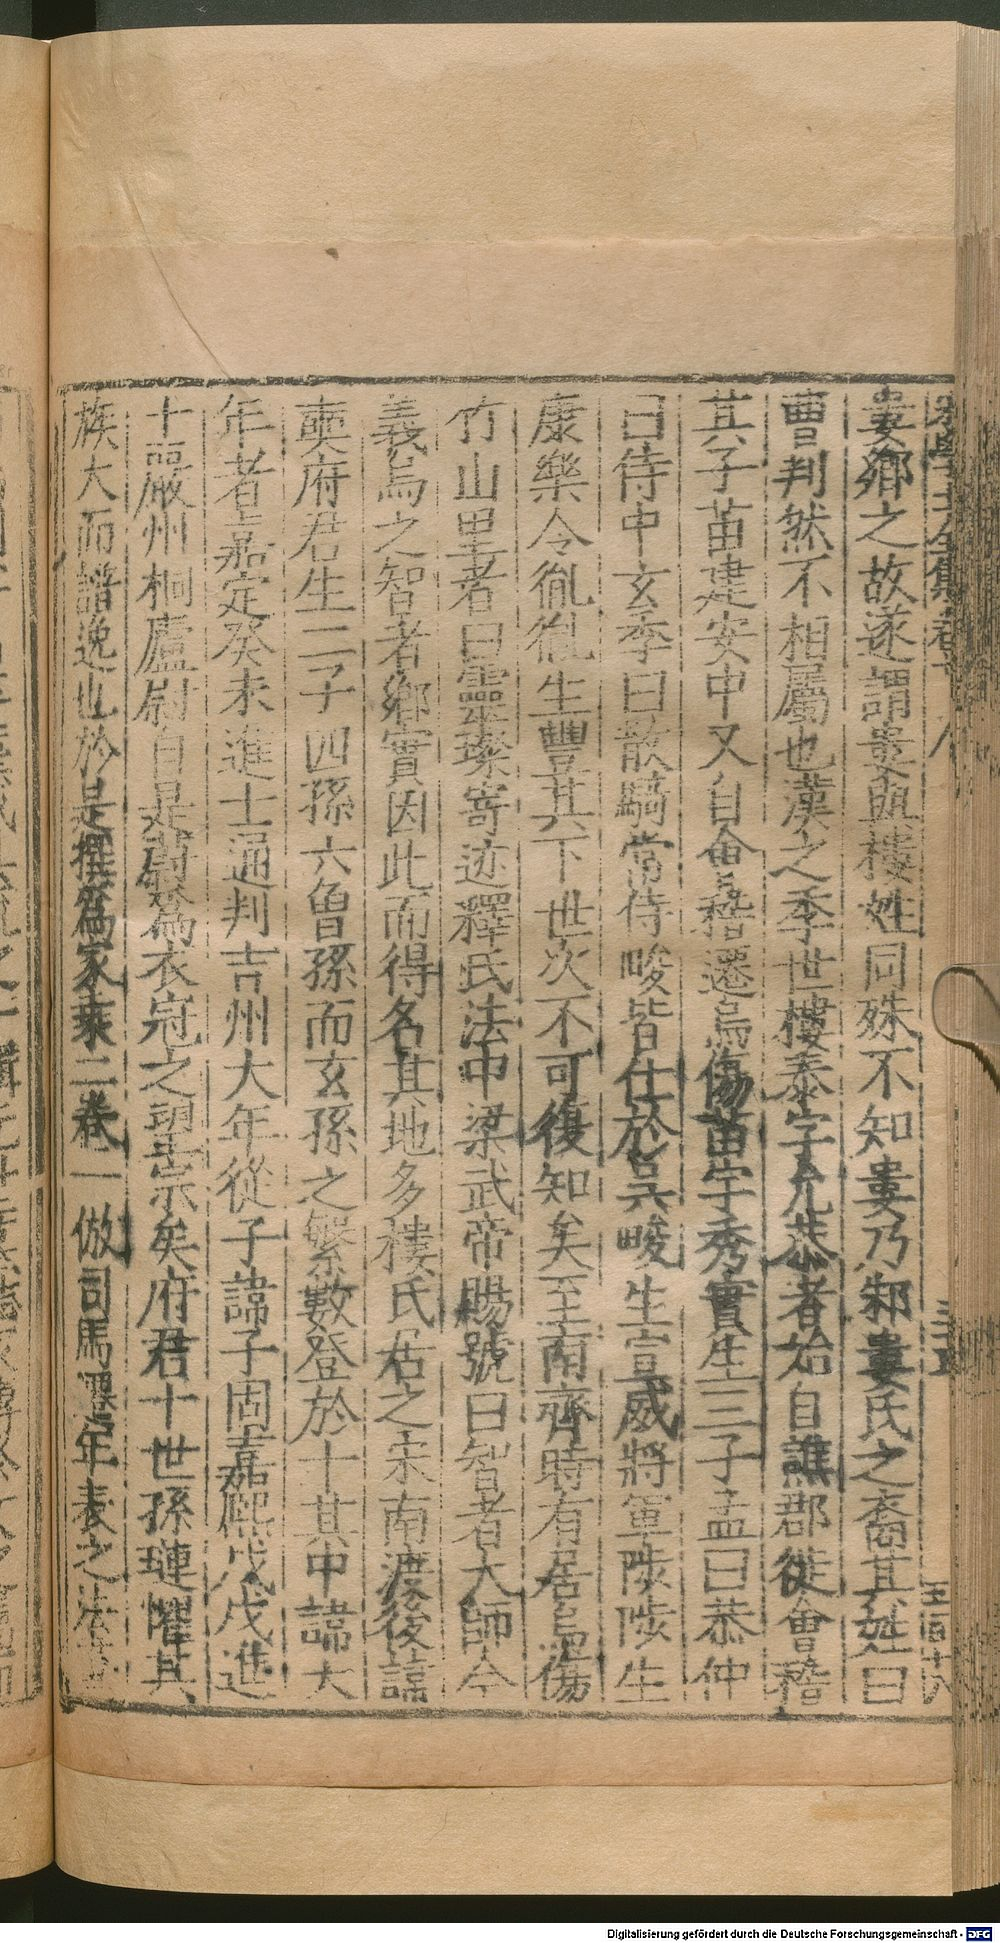 宋學士全集卷十八 三五 五百十八
婁鄉之故遂謂婁茰樓姓同殊不知婁乃邾婁氏之裔其姓曰
曹判然不相屬也漢之季世樓泰字允恭者始自譙郡徙會稽
其子苗建安中又自會稽遷烏傷苗字秀實生三子孟曰恭仲
曰侍中玄季曰散騎常侍畯皆仕於吳畯生宣威將軍陟陟生
康樂令胤胤生豐其下世次不可復知矣至南齊時有居烏傷
竹山里者曰靈璨寄迹釋氏法中梁武帝賜號曰智者大師今
義烏之智者鄉實因此而得名其地多樓氏居之宋南渡後諱
奭府君生二子四孫六曾孫而玄孫之繁數登於十其中諱大
年者嘉定癸未進士通判吉州大年從子諱子固嘉熙戊戌進
士嚴州桐廬尉自是蔚爲衣冠之望宗矣府君十世孫璉懼其
族大而譜逸也於是撰爲家乘二卷一倣司馬遷年表之法
Digitalisierung gefördert durch die Deutsche Forschungsgemeinschaft - DFG